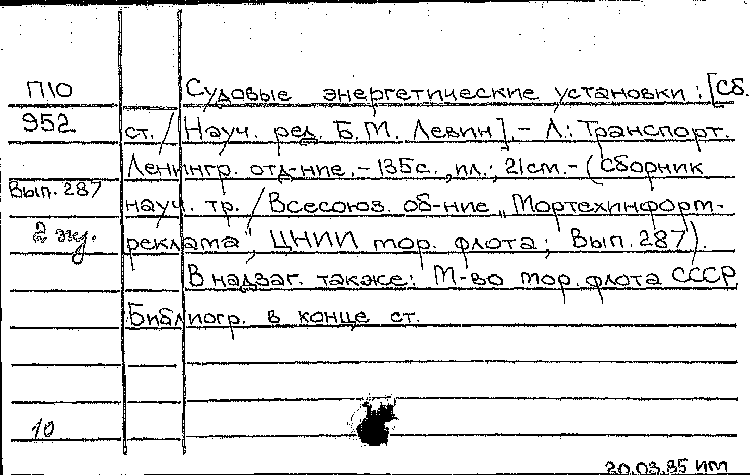 П10 Судовые энергетические установки : [Сб.
952 ст. / Науч. ред. Б.М. Левин]. - Л.: Транспорт.
Ленингр. отд-ние, - 135с., ил.; 21см. - (Сборник
Вып. 287 науч. тр. / Всесоюз. об-ние „Мортехинформ-
2 экз. реклама", ЦНИИ мор. флота; Вып. 287).
В надзаг. также: М-во мор. флота СССР
Библиогр. в конце ст.
10
20.03.85 ИМ